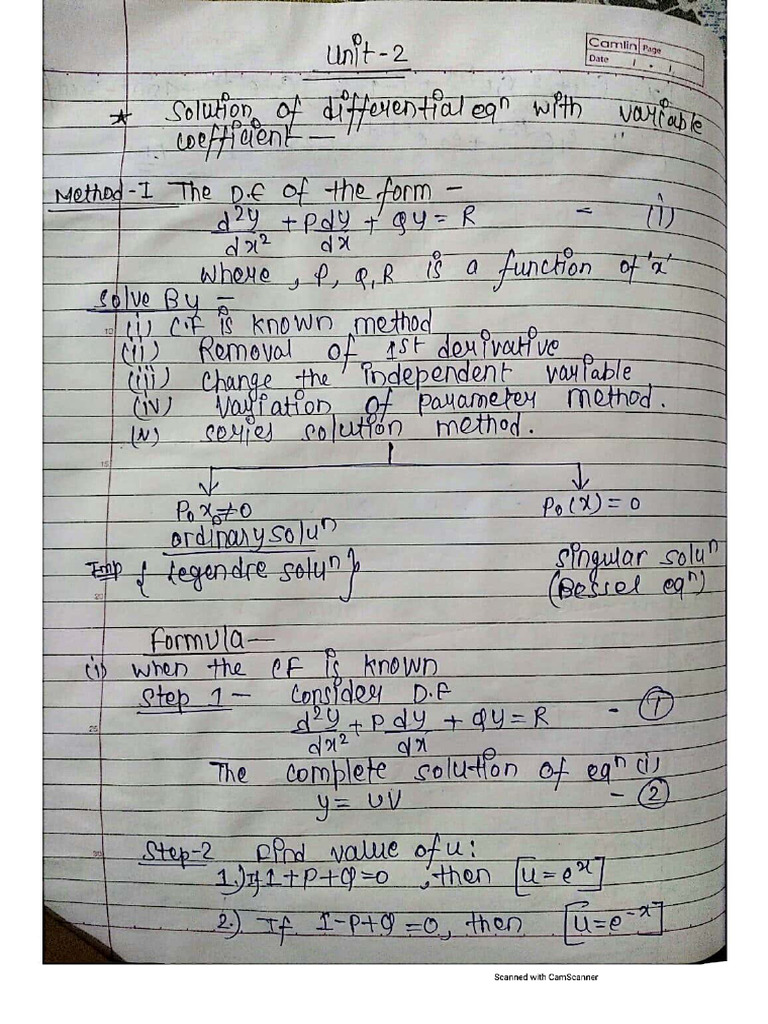 Unit-2
Camlin Page
Date
* Solution of differential eqⁿ with variable
coefficient —
Method-I The D.E of the form -
d²y/dx² + P dy/dx + Qy = R - (i)
where, P, Q, R is a function of 'x'
Solve By -
(i) C.F is known method
(ii) Removal of 1st derivative
(iii) Change the independent variable
(iv) Variation of parameter method.
(v) series solution method.
P₀x₀≠0 P₀(x) = 0
ordinary soluⁿ
Imp { Legendre soluⁿ} Singular soluⁿ
(Bessel eqⁿ)
Formula—
(i) when the CF is known
Step 1 - Consider D.E
d²y/dx² + P dy/dx + Qy = R - ①
The complete solution of eqⁿ (i)
y = uv - ②
Step-2 Find value of u:
1.) If 1+P+Q=0, then [u=eˣ]
2.) If 1-P+Q=0, then [u=e⁻ˣ]
Scanned with CamScanner